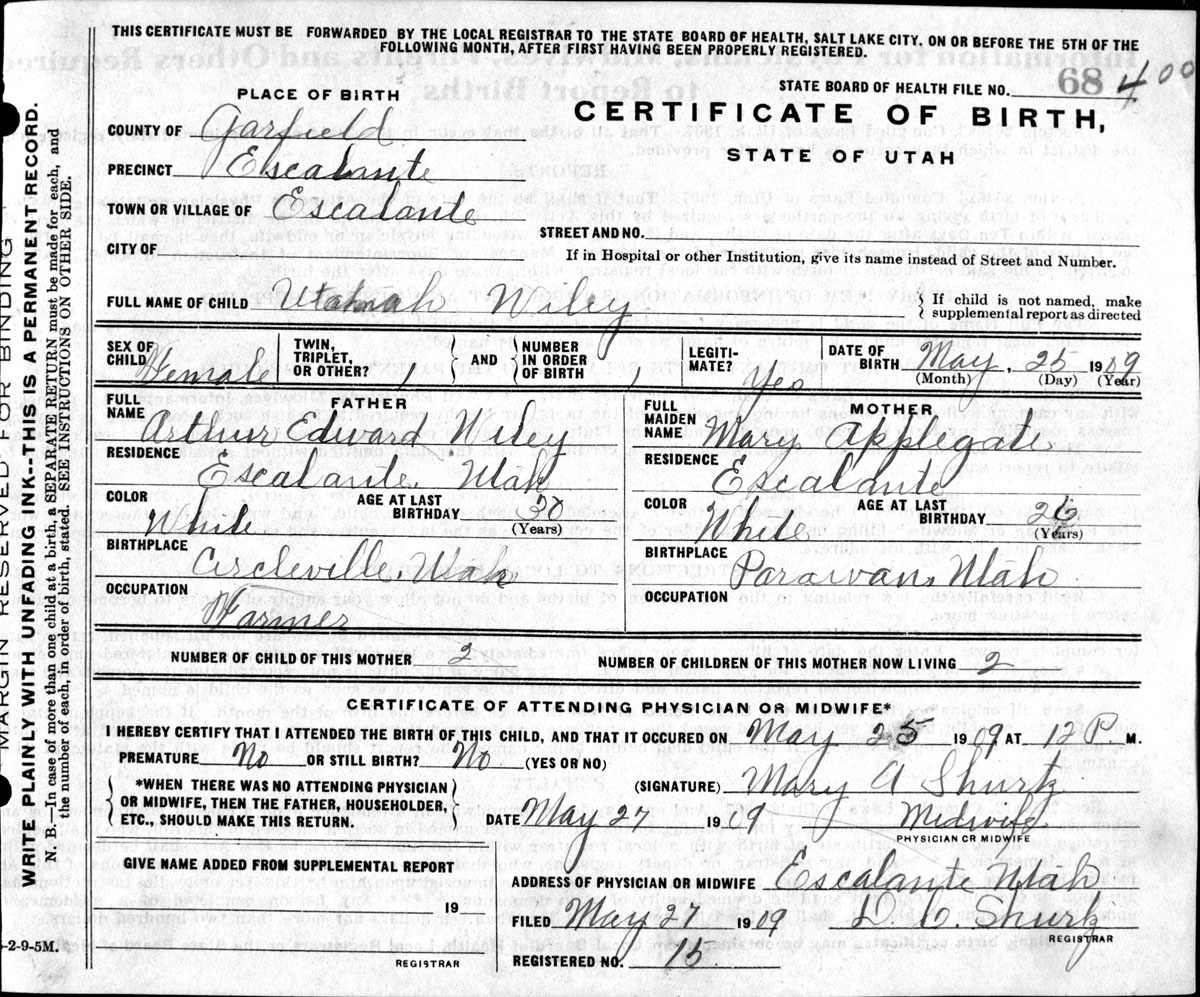 THIS CERTIFICATE MUST BE FORWARDED BY THE LOCAL REGISTRAR TO THE STATE BOARD OF HEALTH, SALT LAKE CITY, ON OR BEFORE THE 5TH OF THE
FOLLOWING MONTH, AFTER FIRST HAVING BEEN PROPERLY REGISTERED.
MARGIN RESERVED FOR BINDING
WRITE PLAINLY WITH UNFADING INK--THIS IS A PERMANENT RECORD.
N. B.—In case of more than one child at a birth, a SEPARATE RETURN must be made for each, and
the number of each, in order of birth, stated. SEE INSTRUCTIONS ON OTHER SIDE.
STATE BOARD OF HEALTH FILE NO. 68 400
PLACE OF BIRTH
CERTIFICATE OF BIRTH,
STATE OF UTAH
COUNTY OF Garfield
PRECINCT Escalante
TOWN OR VILLAGE OF Escalante
STREET AND NO.
CITY OF
If in Hospital or other Institution, give its name instead of Street and Number.
FULL NAME OF CHILD Utahnah Wiley
If child is not named, make
supplemental report as directed
SEX OF CHILD Female TWIN, TRIPLET, OR OTHER? 1 AND NUMBER IN ORDER OF BIRTH 1 LEGITI-MATE? Yes DATE OF BIRTH May, 25 1909
(Month) (Day) (Year)
FATHER
FULL NAME Arthur Edward Wiley
RESIDENCE Escalante Utah
COLOR White AGE AT LAST BIRTHDAY (Years)
BIRTHPLACE Circleville, Utah
OCCUPATION Farmer
MOTHER
FULL MAIDEN NAME Mary Applegate
RESIDENCE Escalante
COLOR White AGE AT LAST BIRTHDAY 26 (Years)
BIRTHPLACE Parawan, Utah
OCCUPATION
NUMBER OF CHILD OF THIS MOTHER 2 NUMBER OF CHILDREN OF THIS MOTHER NOW LIVING 2
CERTIFICATE OF ATTENDING PHYSICIAN OR MIDWIFE*
I HEREBY CERTIFY THAT I ATTENDED THE BIRTH OF THIS CHILD, AND THAT IT OCCURED ON May 25 1909 AT 12 P M.
PREMATURE No OR STILL BIRTH? No (YES OR NO)
*WHEN THERE WAS NO ATTENDING PHYSICIAN
OR MIDWIFE, THEN THE FATHER, HOUSEHOLDER,
ETC., SHOULD MAKE THIS RETURN.
(SIGNATURE) Mary A Shurtz
DATE May 27 1909 Midwife
PHYSICIAN OR MIDWIFE
GIVE NAME ADDED FROM SUPPLEMENTAL REPORT
19
REGISTRAR
ADDRESS OF PHYSICIAN OR MIDWIFE Escalante Utah
FILED May 1909 Shurtz
REGISTRAR
REGISTERED NO. 15
-2-9-5M.